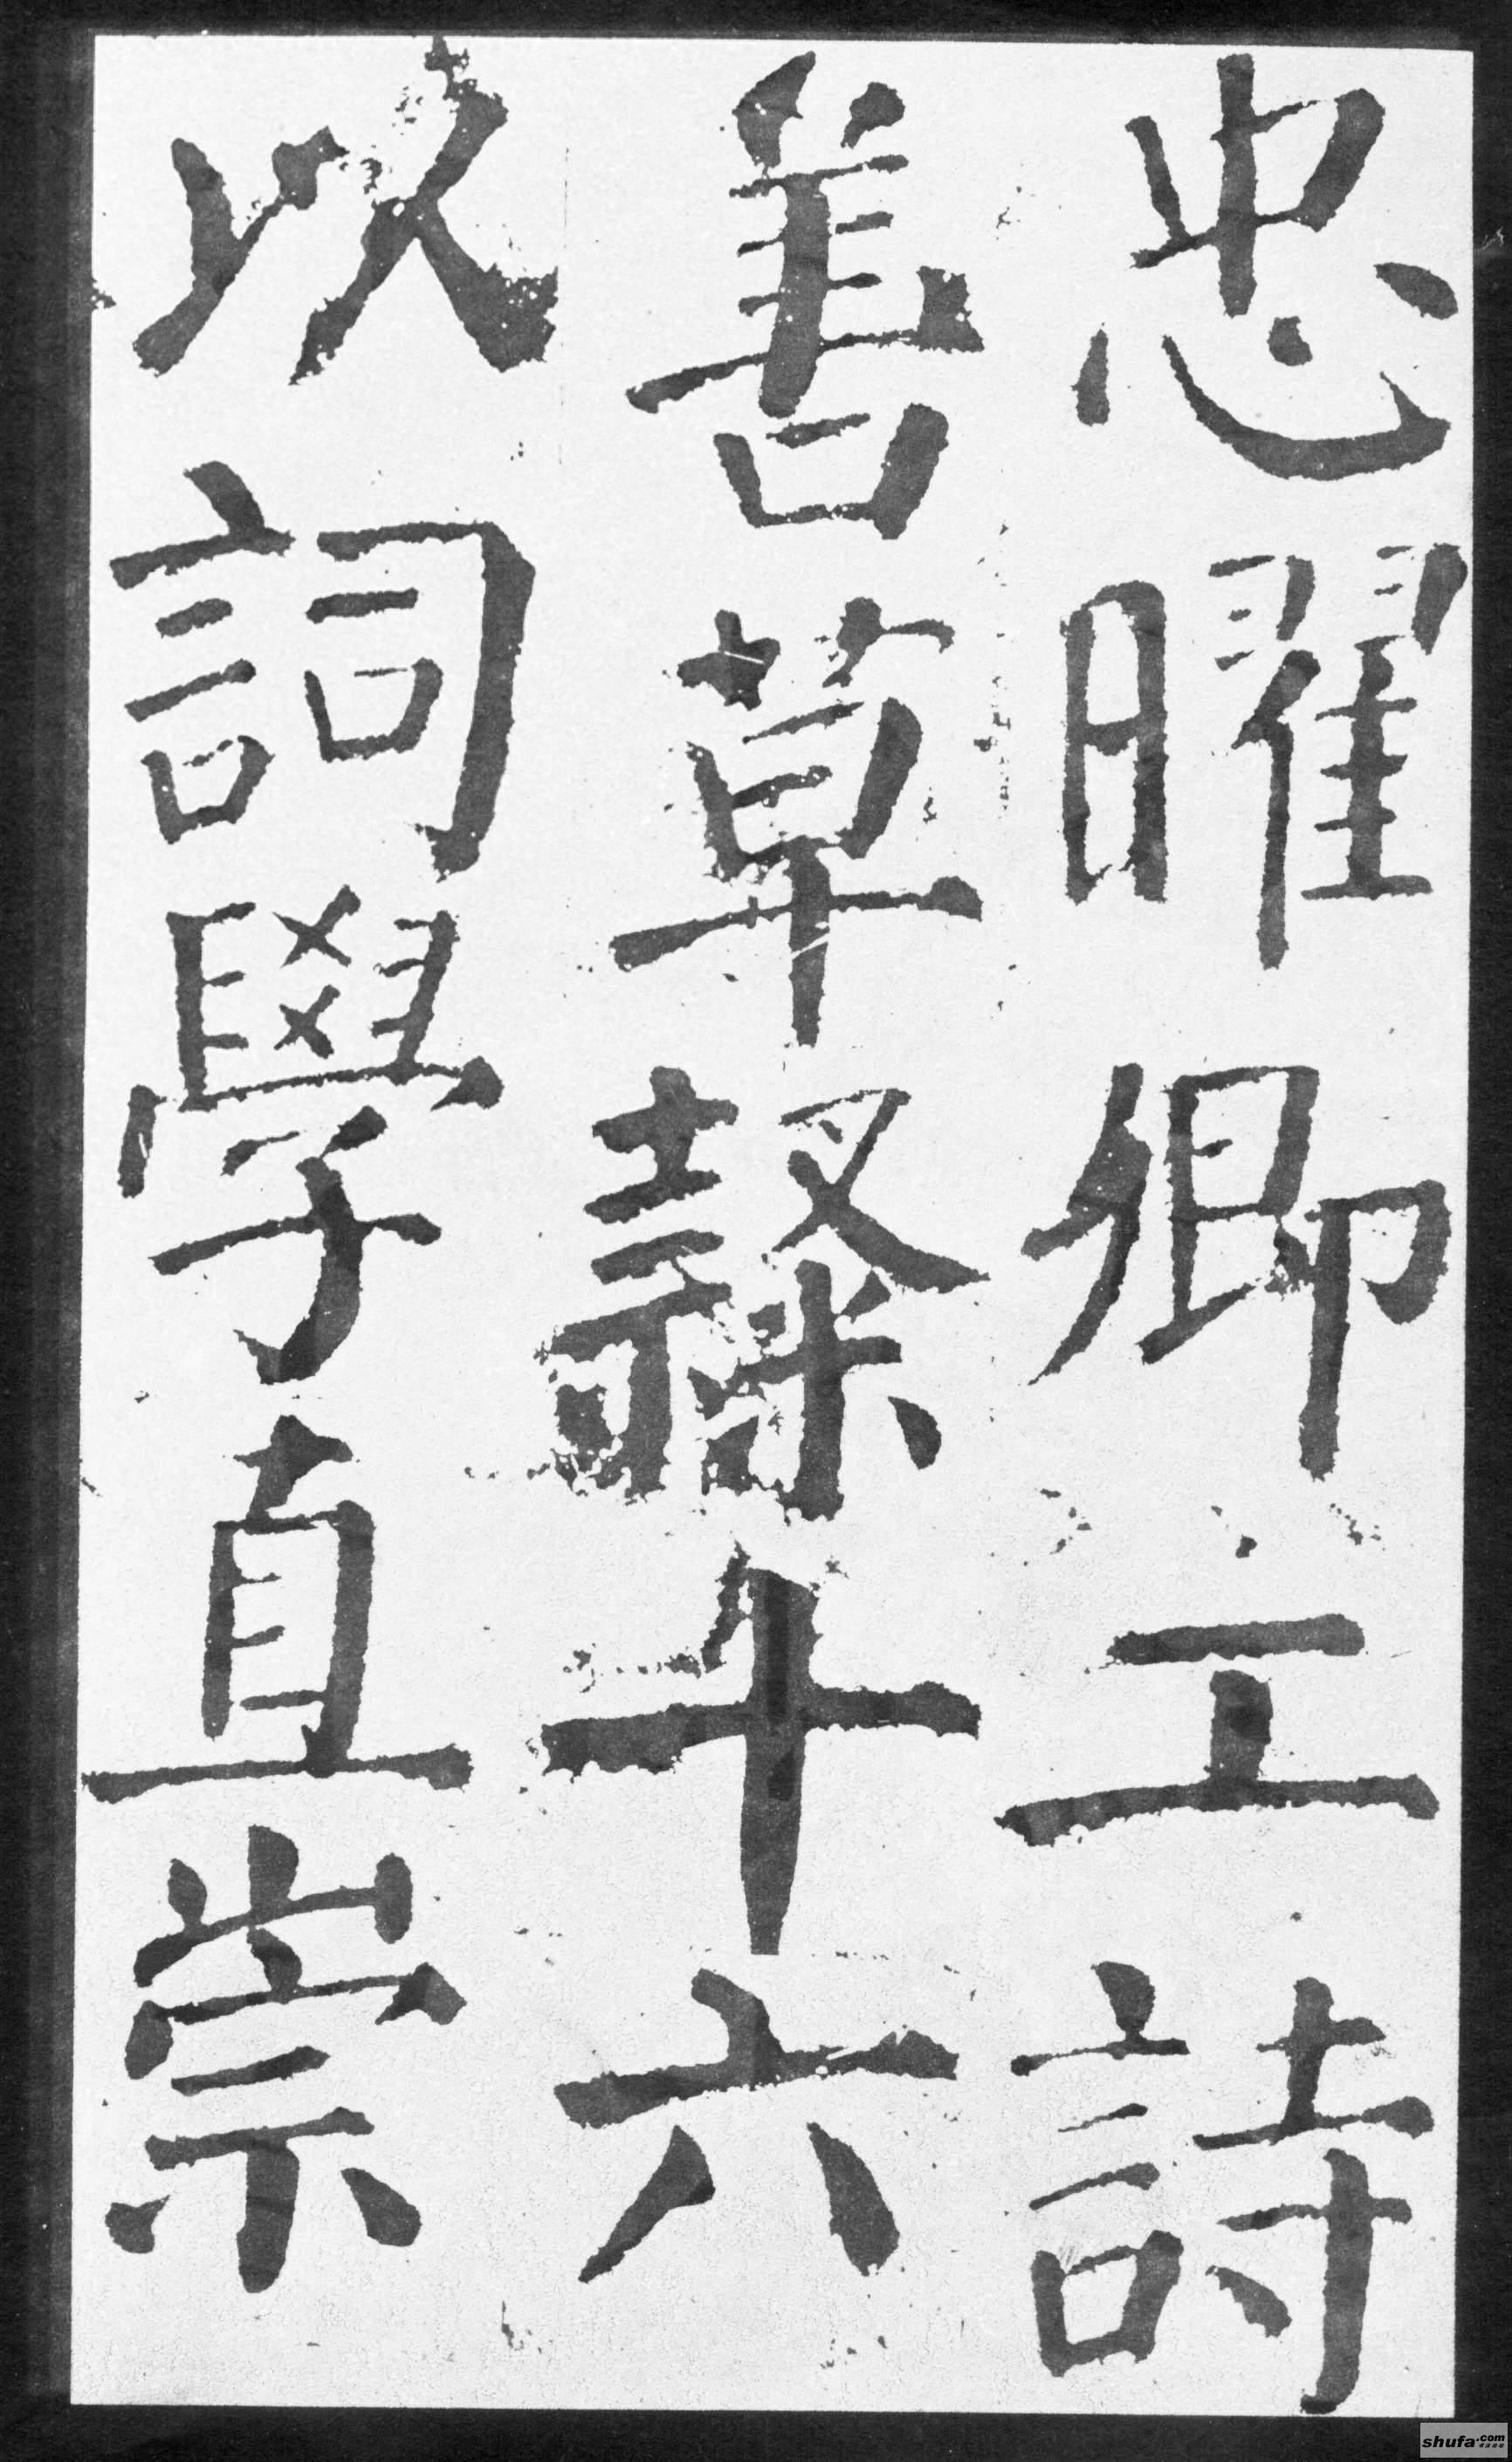 忠曜卿工詩
善草隸十六
以詞學直崇
shufa.com